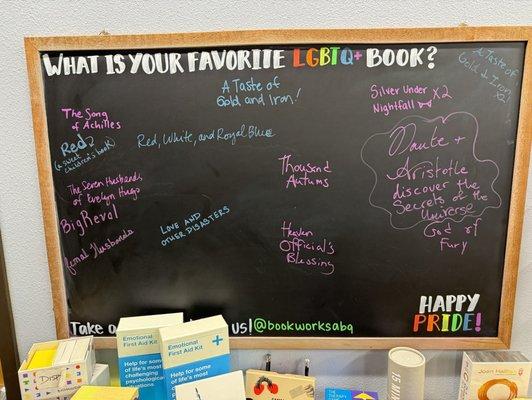 WHAT IS YOUR FAVORITE LGBTQ+ BOOK?
A Taste of
Gold and Iron!
A Taste of
Gold & Iron
x2!
Silver Under x2
Nightfall
The Song
of Achilles
Red
(a sweet
children's book)
Red, White, and Royal Blue
Dante +
Aristotle
discover the
Secrets of the
Universe
Thousand
Autums
The Seven Husbands
of Evelyn Hugo
Big Reval
Femal Husbands
LOVE AND
OTHER DISASTERS
Heaven
Official's
Blessing
God of
Fury
HAPPY
PRIDE!
Take a
us! @bookworksabq
Emotional
First Aid Kit
Help for some of
life's most
challenging
psychological
Emotional
First Aid Kit
Help for some of
life's most
15 MIN
Joan Halifax